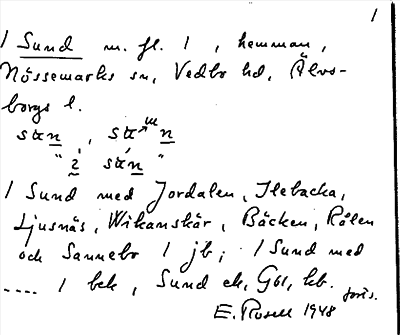 1
1 Sund m. fl. 1, hemman,
Nössemarks sn, Vedbo hd, Älvs-
borgs l.
1 Sund med Jordalen, Ilebacka,
Ljusnäs, Wikanskär, Bäcken, Rölen
och Sannebo 1 jb; 1 Sund med
.... 1 bek, Sund ek, Gbl, kb.
E. Rosell 1948